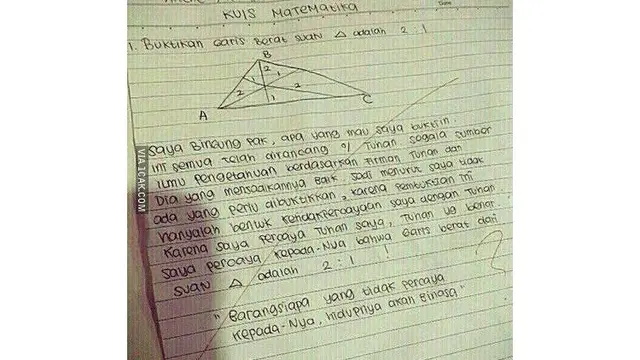 KUIS MATEMATIKA
1. BUKTIKAN GARIS BERAT SUATU △ adalah 2 : 1
B
2 2
1 1
2 2
1
A C
Saya BINGUNG PAK, apa yang mau saya buktiin.
Ini semua telah dirancang o/ TUHAN segala sumber
ilmu pengetahuan berdasarkan Firman Tuhan dan
Dia yang menjadikannya baik. Jadi menurut saya tidak
ada yang perlu dibuktikan, karena pembuktian ini
hanyalah bentuk ketidakpercayaan saya dengan Tuhan
Karena saya percaya Tuhan saya, Tuhan yg benar.
saya percaya kepada-Nya bahwa garis berat dari
suatu △ adalah 2 : 1 !
"Barangsiapa yang tidak percaya
kepada-Nya, hidupnya akan Binasa"
VIA 1CAK.COM